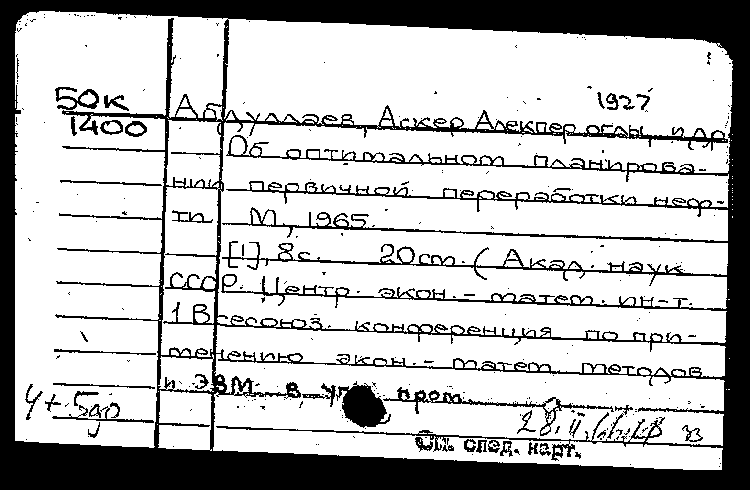 1927
50к
1400
Абдуллаев, Аскер Алекпер оглы, и др
Об оптимальном планирова-
нии первичной переработки неф-
ти М., 1965.
[1], 8с. 20см. (Акад. наук
СССР. Центр. экон. - матем. ин-т.
1 Всесоюз. конференция по при-
менению экон. - матем. методов
и ЭВМ в пром.
4+5до
28.II.
См. след. карт.